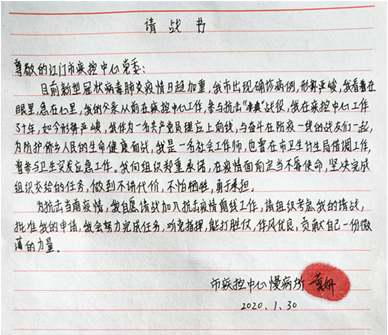 请战书
尊敬的江门市疾控中心党委：
目前新型冠状病毒肺炎疫情日趋加重，我市出现确诊病例，形势严峻，我看着在
眼里，急在心里，我的父亲从前在疾控中心工作，参与抗击“非典”战役，我在疾控中心工作
了9年，如今形势严峻，我作为一名共产党员理当上前线，与奋斗在防疫一线的战友们一起，
为防护侨乡人民的生命健康而战。我是一名社会工作师，也曾在市卫生计生局借调工作，
曾参与卫生应急工作。我向组织郑重承诺，在疫情面前定当不辱使命，坚决完成
组织交给的任务，做到不讲代价，不怕牺牲，勇于承担。
为抗击当前疫情，我自愿请战加入抗击疫情前线工作，请组织考虑我的请战，
批准我的申请，我会努力完成任务，听党指挥，能打胜仗，作风优良，贡献自己一份微
薄的力量。
市疾控中心慢病所
2020.1.30